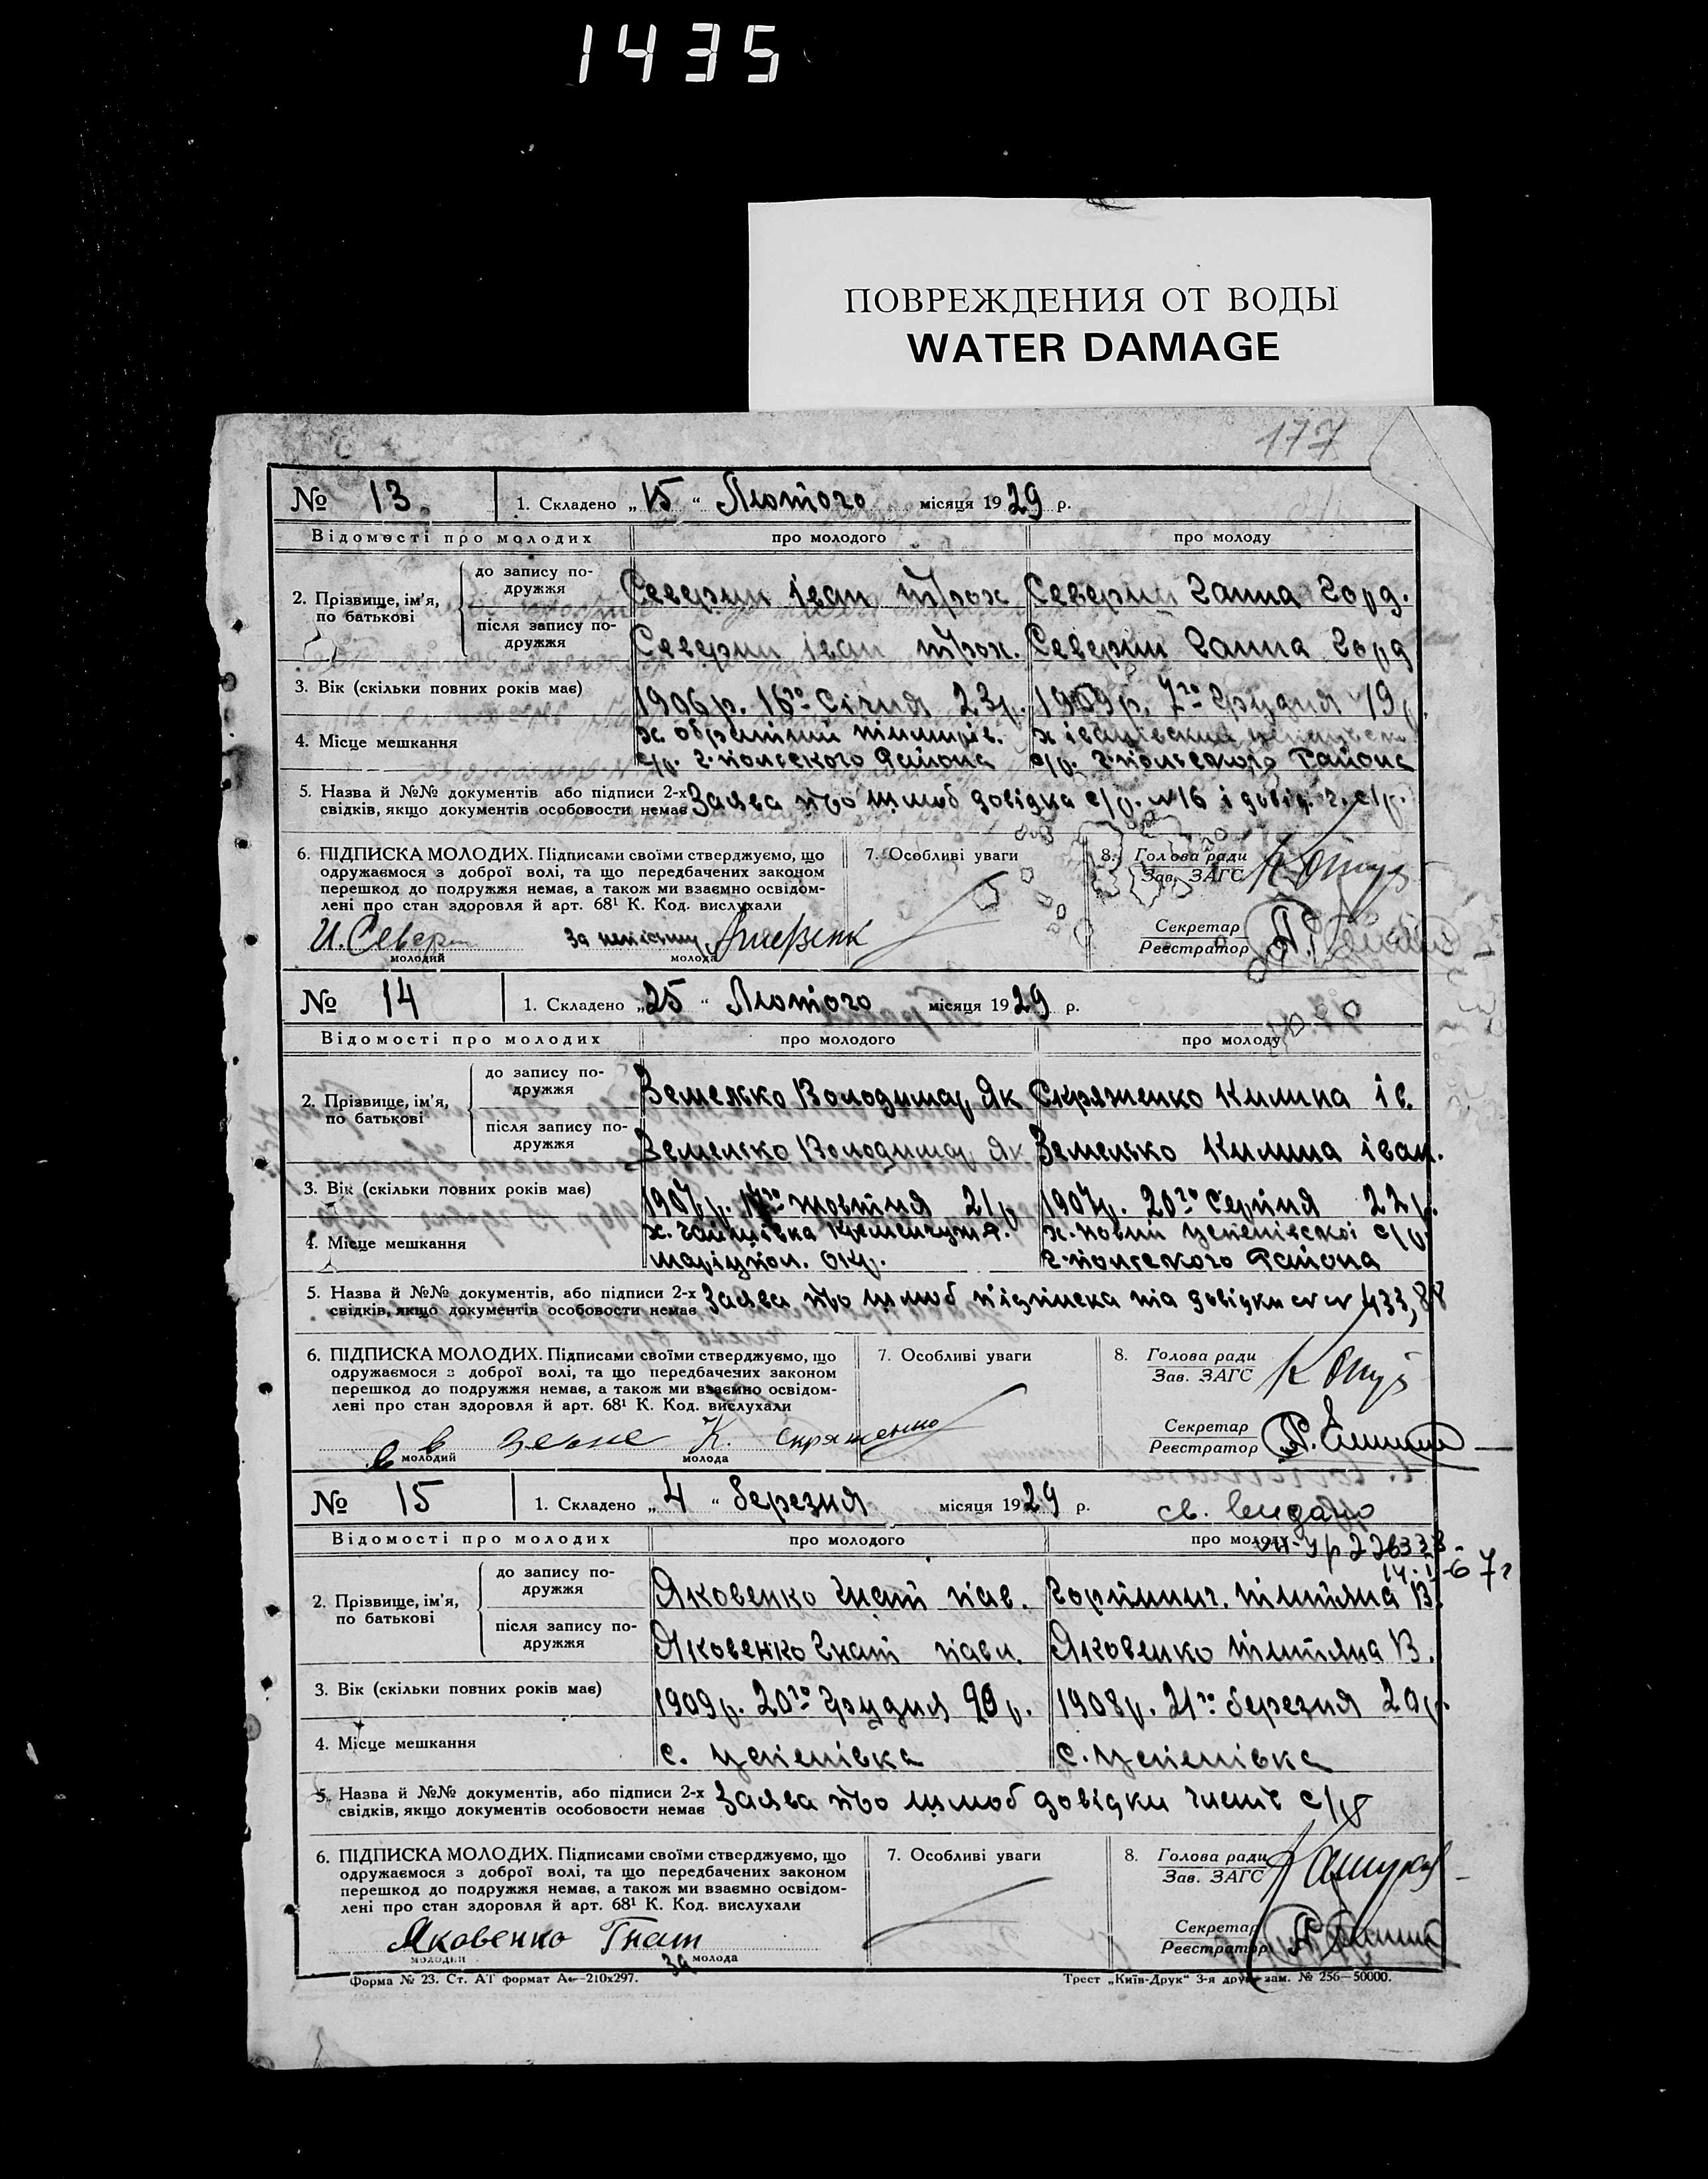 1435
ПОВРЕЖДЕНИЯ ОТ ВОДЫ
WATER DAMAGE
177
№ 13. 1. Складено „15“ Лютого місяця 1929 р.
Відомості про молодих про молодого про молоду
2. Прізвище, ім'я, по батькові
до запису по-
дружжя
Северин Іван Троx Северин Ганна Горд.
після запису по-
дружжя
Северин Іван Трох. Северин Ганна Горд
3. Вік (скільки повних років має) 1906 р. 16го Січня 23 р. 1909 р. 7го Грудня 19 р.
4. Місце мешкання
с/р. Г-польского Района с/р. Г-польского Района
5. Назва й №№ документів або підписи 2-х
свідків, якщо документів особовости немає
Заява про шлюб довідка с/р. №16 і довід. с/р.
6. ПІДПИСКА МОЛОДИХ. Підписами своїми стверджуємо, що
одружаємося з доброї волі, та що передбачених законом
перешкод до подружжя немає, а також ми взаємно освідом-
лені про стан здоровля й арт. 68¹ К. Код. вислухали
И. Северин За неписьму
молодий молода
7. Особливі уваги
8. Голова ради
Зав. ЗАГС
Секретар
Реєстратор
№ 14 1. Складено „25“ Лютого місяця 1929 р.
Відомості про молодих про молодого про молоду
2. Прізвище, ім'я, по батькові
до запису по-
дружжя
Земелько Володимар Як Скряженко Килина Ів.
після запису по-
дружжя
Земелько Володимар Як Земелько Килина Іван.
3. Вік (скільки повних років має) 1907 р. Жовтня 21 р 1907 р. 20го Серпня 22 р.
4. Місце мешкання
х. Новий Успенівскої с/р.
Маріупол. окр. Г-польского Района
5. Назва й №№ документів, або підписи 2-х
свідків, якщо документів особовости немає
Заява про шлюб підписка та довідки №№ 433, 88
6. ПІДПИСКА МОЛОДИХ. Підписами своїми стверджуємо, що
одружаємося з доброї волі, та що передбачених законом
перешкод до подружжя немає, а також ми взаємно освідом-
лені про стан здоровля й арт. 68¹ К. Код. вислухали
К. Скряженко
молодий молода
7. Особливі уваги
8. Голова ради
Зав. ЗАГС
Секретар
Реєстратор
№ 15 1. Складено „4“ Березня місяця 1929 р.
св. видано
Відомості про молодих про молодого про молоду
2. Прізвище, ім'я, по батькові
до запису по-
дружжя
Яковенко Гнат Пав.
після запису по-
дружжя
Яковенко Гнат Павл. Яковенко Титяна В.
3. Вік (скільки повних років має) 1909 р. 20го Грудня 20 р. 1908 р. 21го Березня 20 р.
4. Місце мешкання с. Успенівка с. Успенівка
5. Назва й №№ документів, або підписи 2-х
свідків, якщо документів особовости немає
Заява про шлюб довідки с/р
6. ПІДПИСКА МОЛОДИХ. Підписами своїми стверджуємо, що
одружаємося з доброї волі, та що передбачених законом
перешкод до подружжя немає, а також ми взаємно освідом-
лені про стан здоровля й арт. 68¹ К. Код. вислухали
Яковенко Гнат
молодий За молода
7. Особливі уваги
8. Голова ради
Зав. ЗАГС
Секретар
Реєстратор
Форма № 23. Ст. АТ формат А—210x297.
Трест „Київ-Друк“ 3-я друк. зам. № 256—50000.